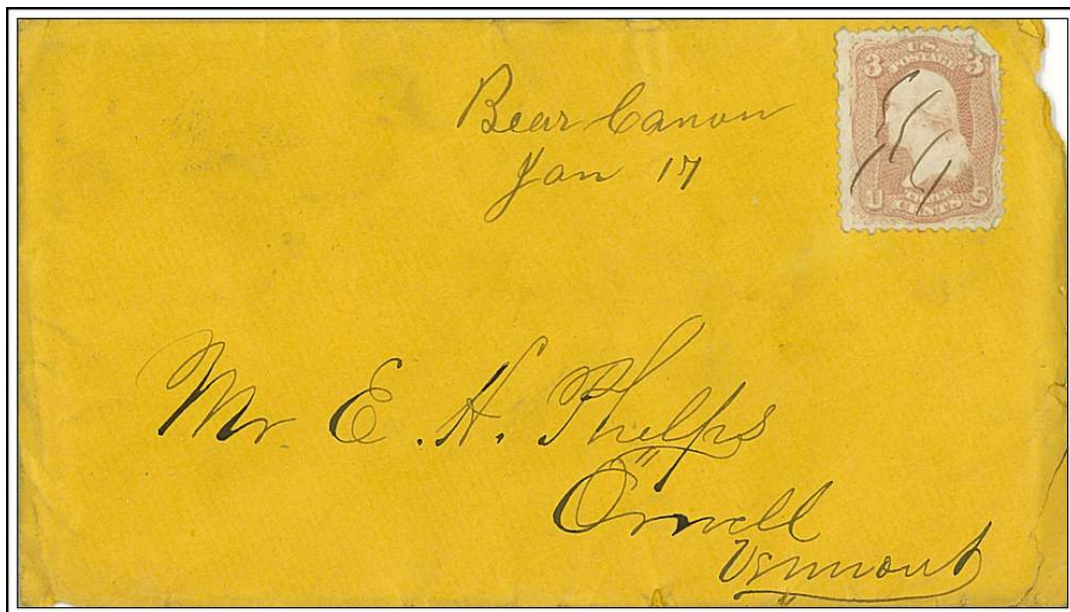 Bear Canon
Jan 17
3 U.S. 3
POSTAGE
U S
CENTS
Mr. E. H. Phelps
Orwell
Vermont